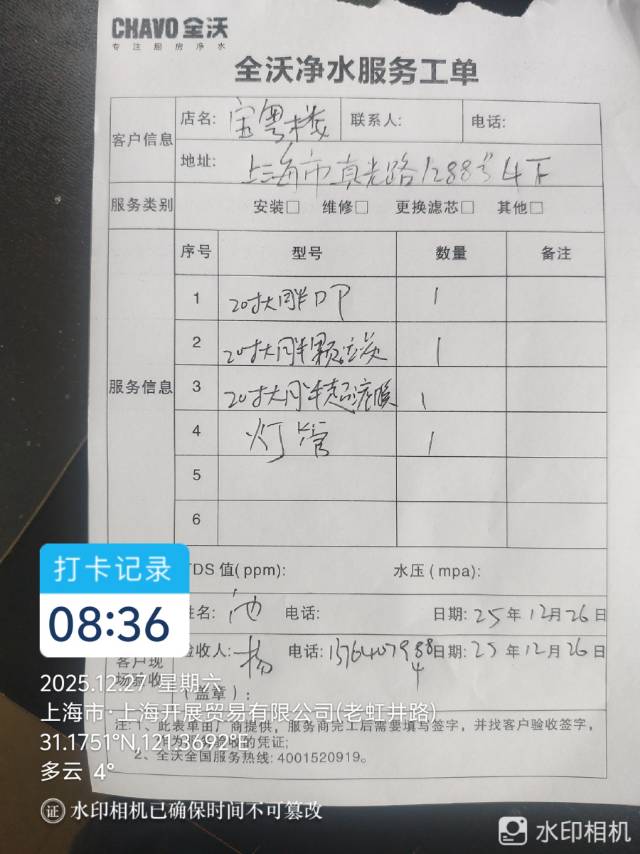 CHAVO 全沃
专注厨房净水
全沃净水服务工单
客户信息
店名: 宝粤楼 联系人: 电话:
地址: 上海市真光路1288号4下
服务类别 安装□ 维修□ 更换滤芯□ 其他□
服务信息
序号 型号 数量 备注
1 20吋大胖PP 1
2 20吋大胖颗粒炭 1
3 20吋大胖超滤膜 1
4 灯管 1
5
6
TDS 值(ppm): 水压(mpa):
姓名: 池 电话: 日期: 25年12月26日
验收人: 杨 电话: 日期: 25年12月26日
客户现场验收
(盖章):
注: 1、此表单由厂商提供，服务商完工后需要填写签字，并找客户验收签字，
的凭证;
2、全沃全国服务热线: 4001520919。
打卡记录
08:36
2025.12.27 星期六
上海市·上海开展贸易有限公司(老虹井路)
31.1751°N,121.3692°E
多云 4°
证 水印相机已确保时间不可篡改
水印相机